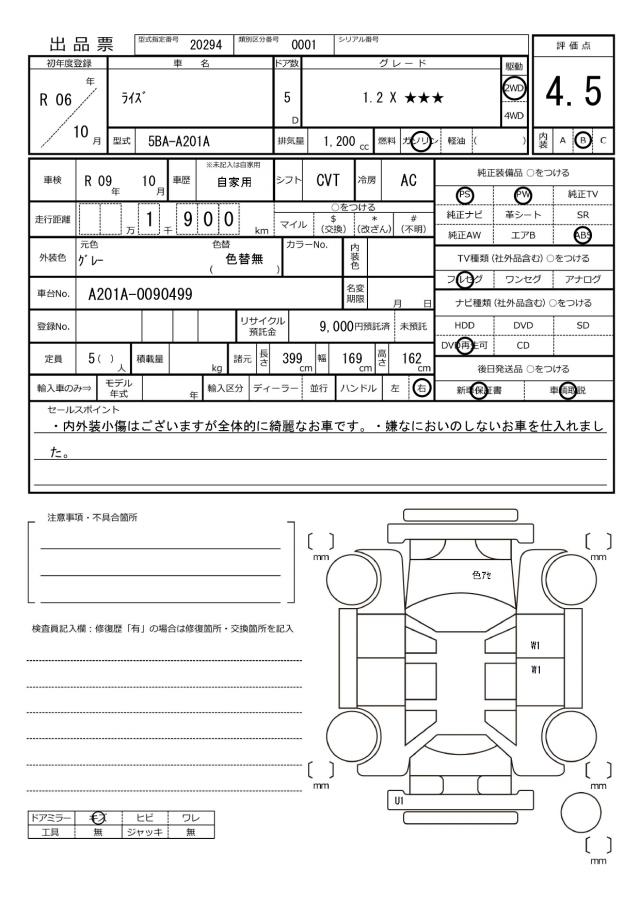 出品票 型式指定番号 20294 類別区分番号 0001 シリアル番号
評価点
4.5
内装 A B C
初年度登録 車名 ドア数 グレード 駆動
R 06 年 10 月
ﾗｲｽﾞ
5 D
1.2 X ★★★
2WD
4WD
型式 5BA-A201A 排気量 1,200 cc 燃料 ガソリン 軽油 ( )
車検 R 09 年 10 月 車歴 ※未記入は自家用 自家用 シフト CVT 冷房 AC
走行距離 万 1 千 9 0 0 km
○をつける
マイル $(交換) *(改ざん) #(不明)
外装色 元色 ｸﾞﾚｰ 色替 ( 色替無 ) カラーNo. 内装色
車台No. A201A-0090499 名変期限 月 日
登録No. リサイクル預託金 9,000円預託済 未預託
定員 5 ( ) 人 積載量 kg 諸元 長さ 399 cm 幅 169 cm 高さ 162 cm
輸入車のみ⇒ モデル年式 年 輸入区分 ディーラー 並行 ハンドル 左 右
純正装備品 ○をつける
PS PW 純正TV
純正ナビ 革シート SR
純正AW エアB ABS
TV種類 (社外品含む) ○をつける
フルセグ ワンセグ アナログ
ナビ種類 (社外品含む) ○をつける
HDD DVD SD
DVD再生可 CD
後日発送品 ○をつける
新車保証書 車輌取説
セールスポイント
・内外装小傷はございますが全体的に綺麗なお車です。・嫌なにおいのしないお車を仕入れまし
た。
注意事項・不具合箇所
検査員記入欄：修復歴「有」の場合は修復箇所・交換箇所を記入
ドアミラー キズ ヒビ ワレ
工具 無 ジャッキ 無
〔 〕 mm
〔 〕 mm
色ｱｾ
W1
W1
〔 〕 mm
〔 〕 mm
U1
〔 〕 mm